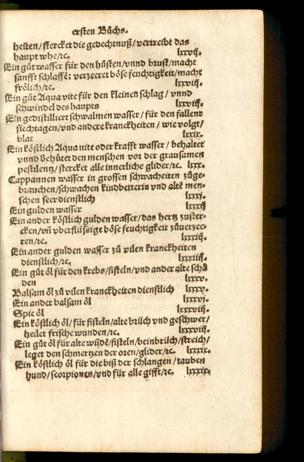 ersten Büchs.
heiten/stercket die gedechtnuß/vertreibt das
haupt whe/ꝛc. lxxvij.
Ein gůt wasser für den hůsten/vnnd brust/macht
sanfft schlaffen: verzeeret böse feuchtigkeit/macht
frölich/ꝛc. lxxviij.
Ein gůt Aqua vite für den kleinen schlag/vnnd
schwindel des haupts lxxviij.
Ein gedistilliert schwalmen wasser/für den fallent
siechtagen/vnd andere kranckheiten/wie volgt/
blat lxxix.
Ein köstlich Aqua uite oder krafft wasser/behalter
vnnd behůter den menschen vor der grausamen
pestilentz/stercket alle innerliche glider/ꝛc. lxx.
Cappannen wasser in grossen schwacheiten zůge-
brauchen/schwachen kindbetterin vnd alte men-
schen seer dienstlich lxxxj.
Ein gulden wasser lxxxij
Ein ander köstlich gulden wasser/das hertz zůster-
cken/vñ vberflüssige böse feuchtigkeit zůuerzee-
ren/ꝛc. lxxxiij.
Ein ander gulden wasser zů vilen kranckheiten
dienstlich/ꝛc. lxxxiiij.
Ein gůt öl für den krebs/fisteln/vnd ander alte schä
den lxxxv.
Balsam öl zů vilen kranckheiten dienstlich lxxxv.
Ein ander balsam öl lxxxvj.
Spic öl lxxxviij.
Ein köstlich öl/für fisteln/alte brüch vnd geschwer/
heilet frische wunden/ꝛc. lxxxviij.
Ein gůt öl für alte wůdē/fisteln/beinbrüch/streich/
leget den schmertzen der oren/glider/ꝛc. lxxxix.
Ein köstlich öl für die biß der schlangen/tauben
hund/scorpionen/vnd für alle gifft/ꝛc. lxxxix.